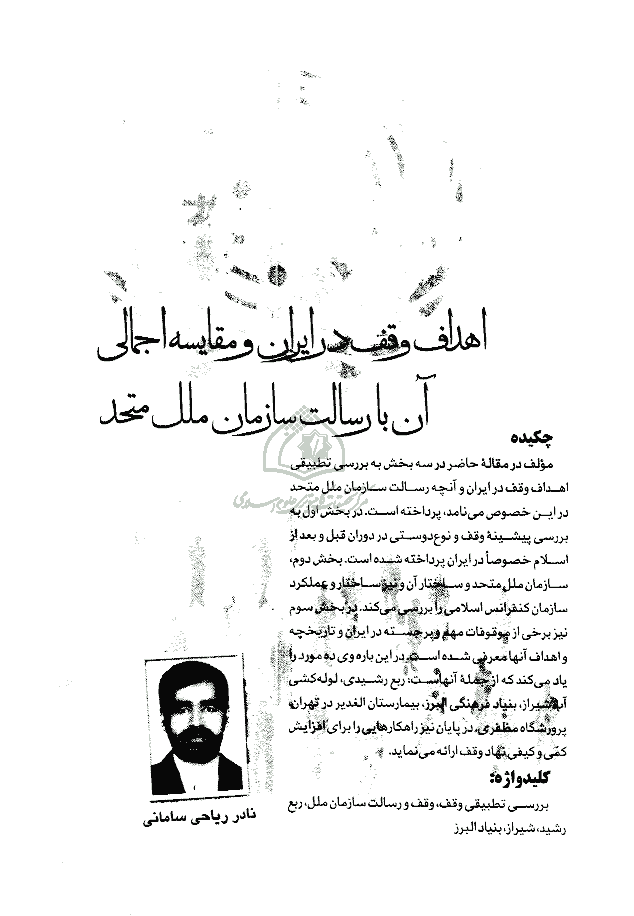 اهداف وقف در ایران و مقایسه اجمالی
آن با رسالت سازمان ملل متحد
چکیده
مؤلف در مقالهٔ حاضر در سه بخش به بررسی تطبیقی
اهداف وقف در ایران و آنچه رسالت سازمان ملل متحد
در این خصوص می‌نامد، پرداخته است. در بخش اول به
بررسی پیشینهٔ وقف و نوع‌دوستی در دوران قبل و بعد از
اسلام خصوصاً در ایران پرداخته شده است. بخش دوم،
سازمان ملل متحد و ساختار آن و نیز ساختار و عملکرد
سازمان کنفرانس اسلامی را بررسی می‌کند. در بخش سوم
نیز برخی از موقوفات مهم و برجسته در ایران و تاریخچه
و اهداف آنها معرفی شده است. در این باره وی ده مورد را
یاد می‌کند که از جملهٔ آنهاست: ربع رشیدی، لوله‌کشی
آب شیراز، بنیاد فرهنگی البرز، بیمارستان الغدیر در تهران،
پرورشگاه مظفری. در پایان نیز راهکارهایی را برای افزایش
کمی و کیفی نهاد وقف ارائه می‌نماید.
کلیدواژه:
بررسی تطبیقی وقف، وقف و رسالت سازمان ملل، ربع
رشید، شیراز، بنیاد البرز
نادر ریاحی سامانی